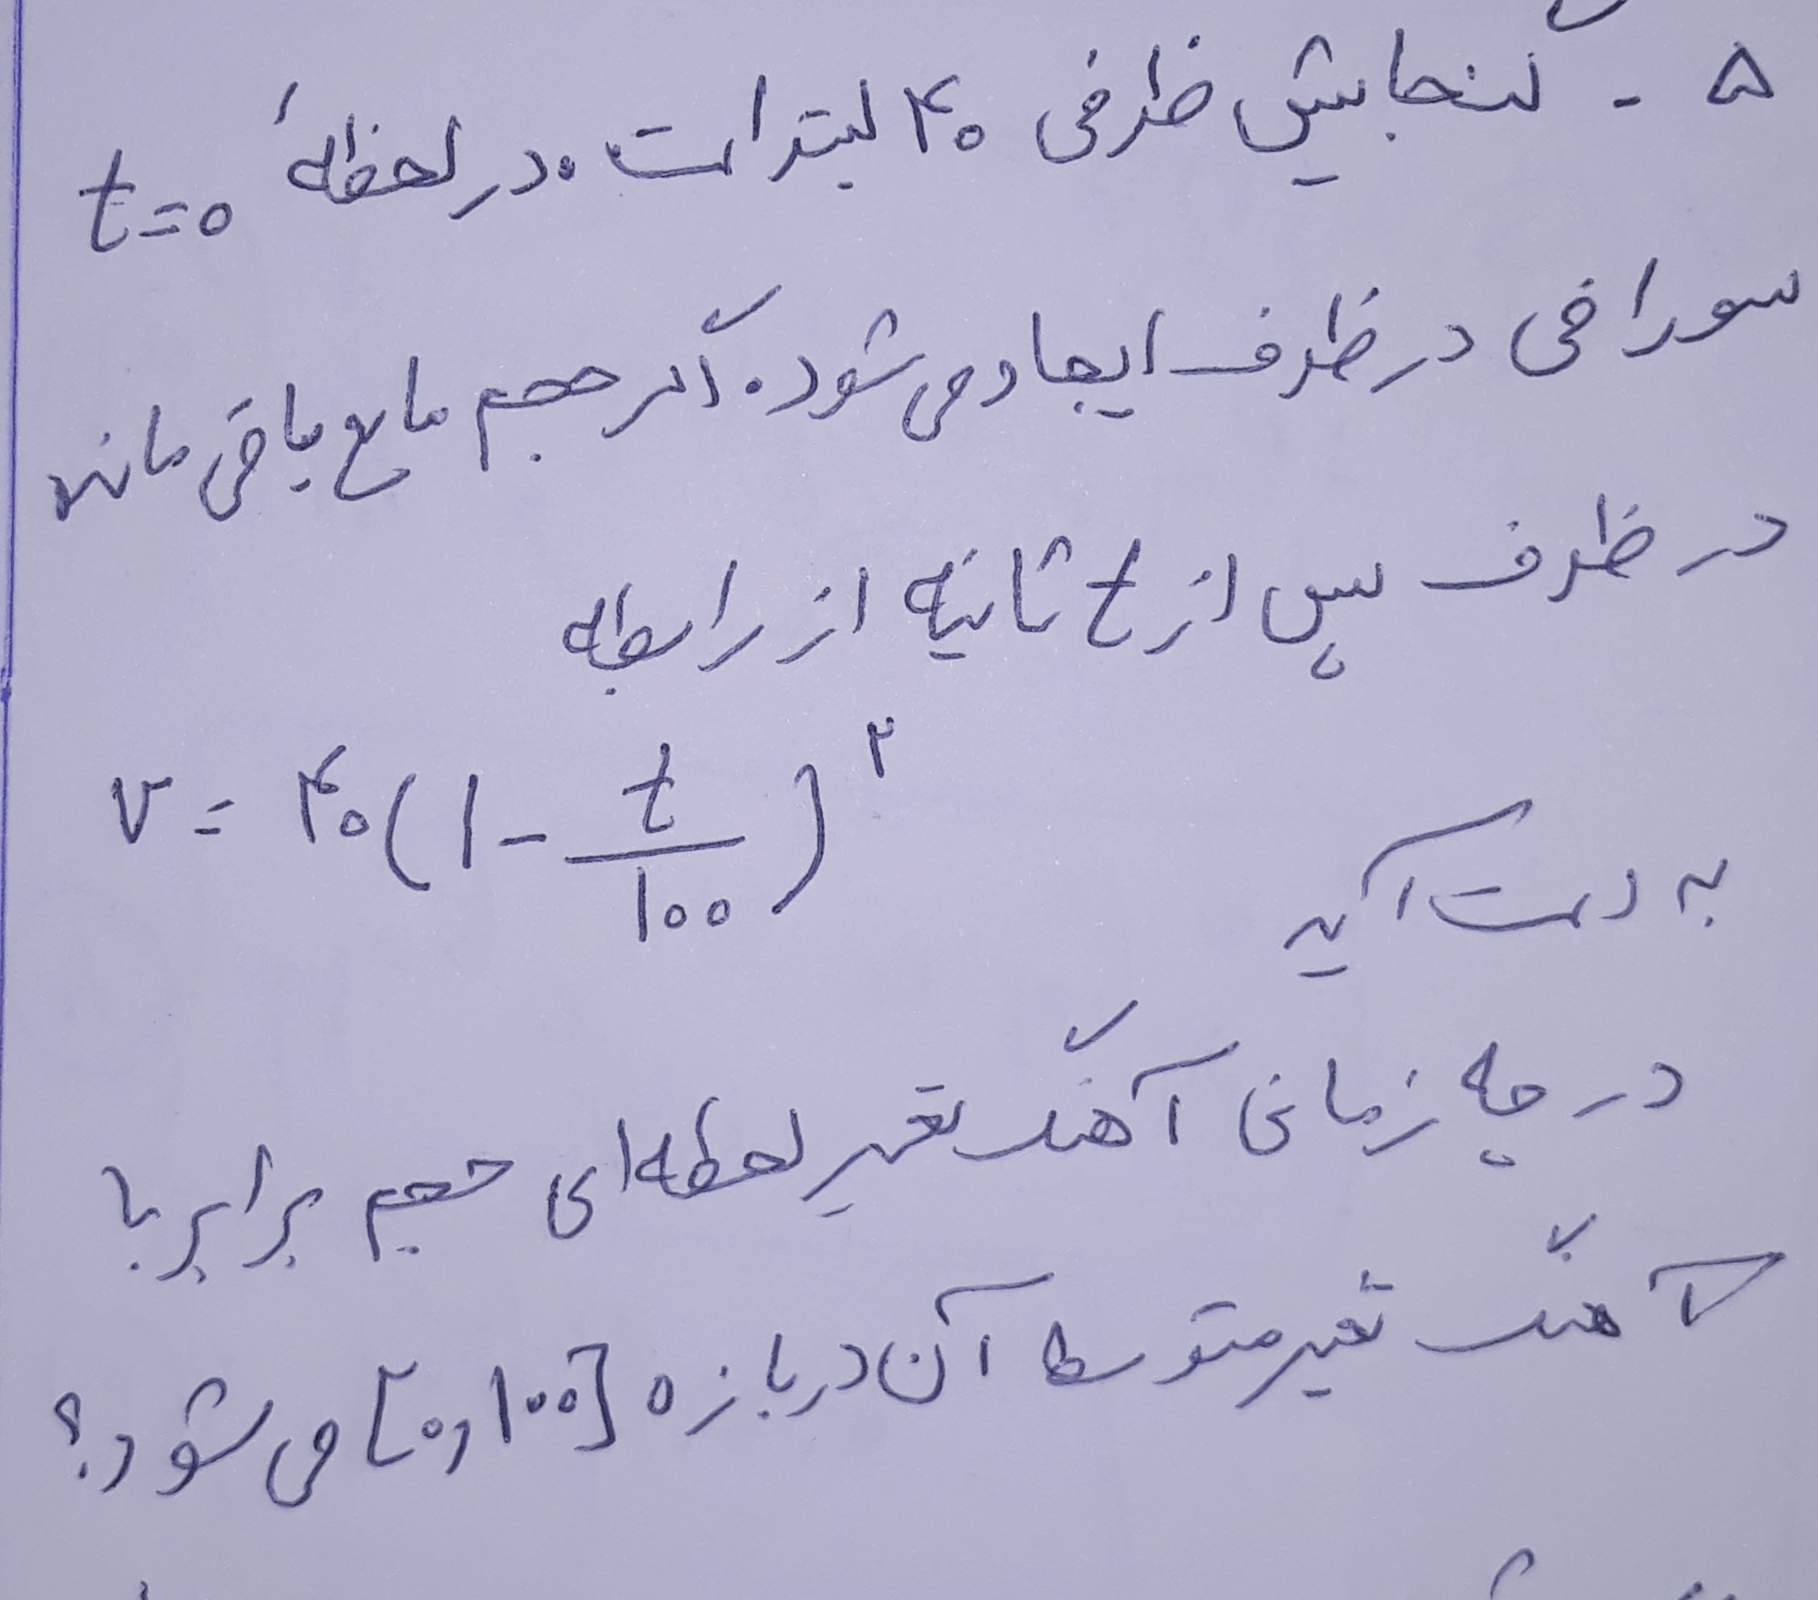 ۵ - گنجایش ظرفی ۴۰ لیتر است. در لحظهٔ t=۰
سوراخی در ظرف ایجاد می شود. اگر حجم مایع باقی مانده
در ظرف پس از t ثانیه از رابطه
v = ۴۰(۱ - t/۱۰۰)^۲
به دست آید
در چه زمانی آهنگ تغییر لحظه ای حجم برابر با
آهنگ تغییر متوسط آن در بازه [۰,۱۰۰] می شود؟